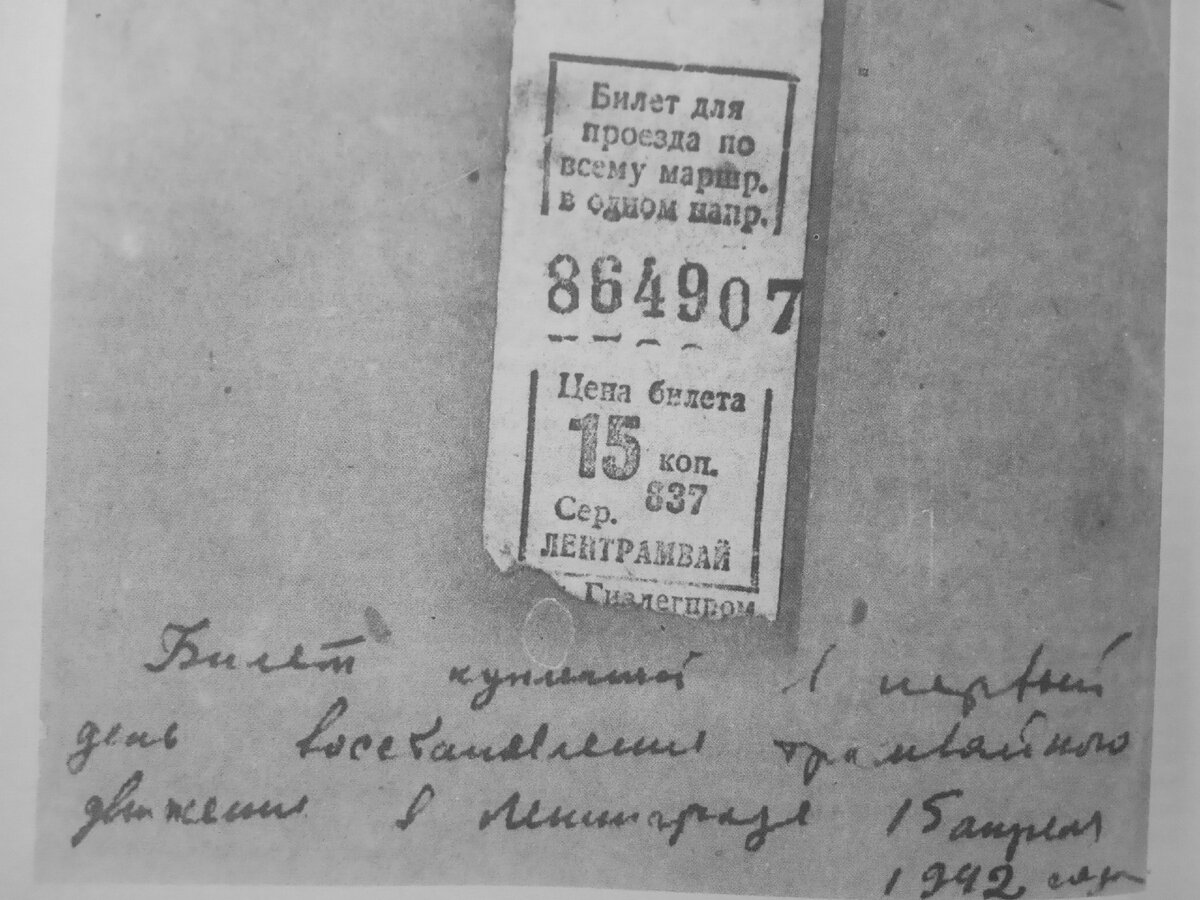 Билет для
проезда по
всему маршр.
в одном напр.
864907
Цена билета
15 коп.
Сер. 837
ЛЕНТРАМВАЙ
Гизлегпром
Билет купленый в первый
день восстановления трамвайного
движения в Ленинграде 15 апреля
1942 года